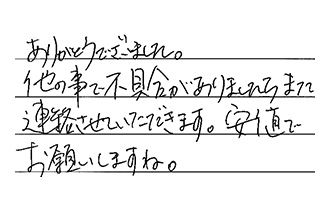 ありがとうでございました。
他の事で不具合がありましたらまた
連絡させていただきます。安値で
お願いしますね。